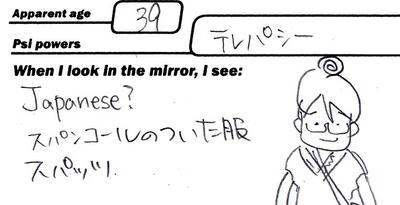 Apparent age 39
Psi powers テレパシー
When I look in the mirror, I see:
Japanese?
スパンコールのついた服
スパッツ.